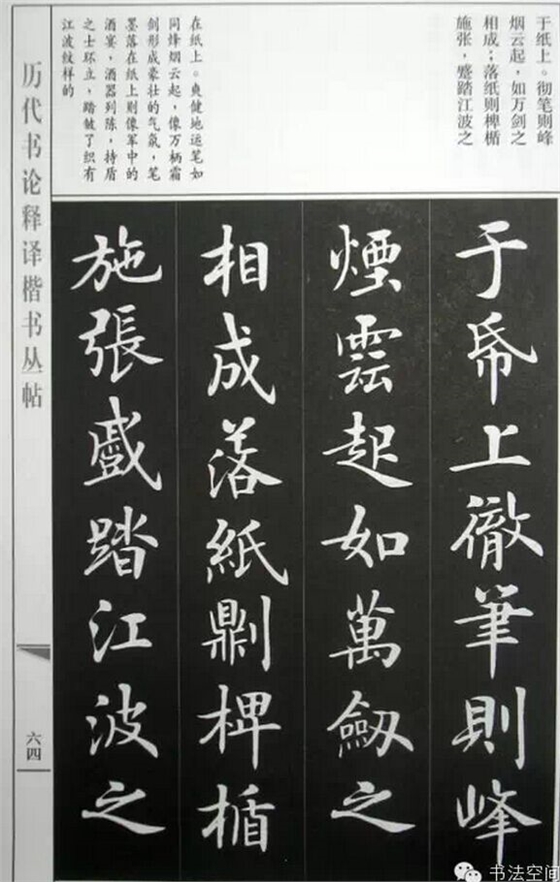 于纸上。彻笔则峰
烟云起，如万剑之
相成；落纸则椑楯
施张，蹙踏江波之
在纸上。爽健地运笔如
同烽烟云起，像万柄霜
剑形成豪壮的气氛，笔
墨落在纸上则像军中的
酒宴，酒器列陈，持盾
之士环立，踏皱了织有
江波纹样的
于帋上徹筆則峰
煙雲起如萬劒之
相成落紙椑楯
施張蹙踏江波之
历代书论释译楷书丛帖
六四
书法空间